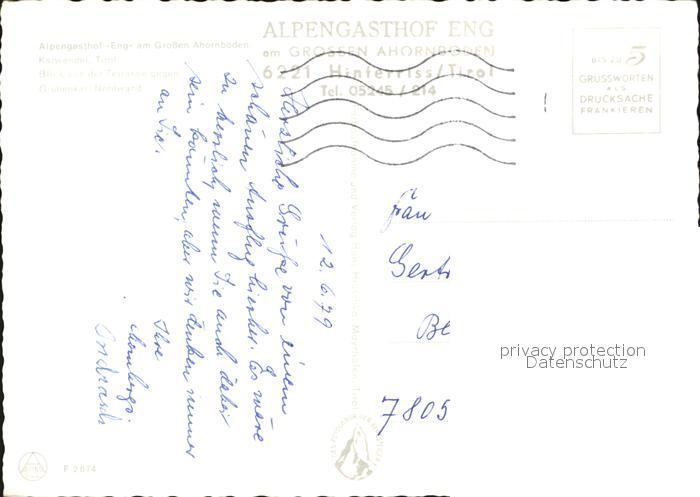 ALPENGASTHOF ENG
am GROSSEN AHORNBODEN
6221 Hinterriss/Tirol
Tel. 05245 / 214
Alpengasthof »Eng« am Großen Ahornboden
Karwendel, Tirol
Blick von der Terrasse gegen
Grubenkar-Nordwand
BIS ZU 5
GRUSSWORTEN
ALS
DRUCKSACHE
FRANKIEREN
12.6.79
Herzliche Grüße von einem
schönen Ausflug hierher. Es wäre
zu herrlich, wenn Sie auch dabei
sein könnten, aber wir denken immer
an Sie.
Ihre
Frau
Gertr
Be
7805
privacy protection
Datenschutz
F 2674